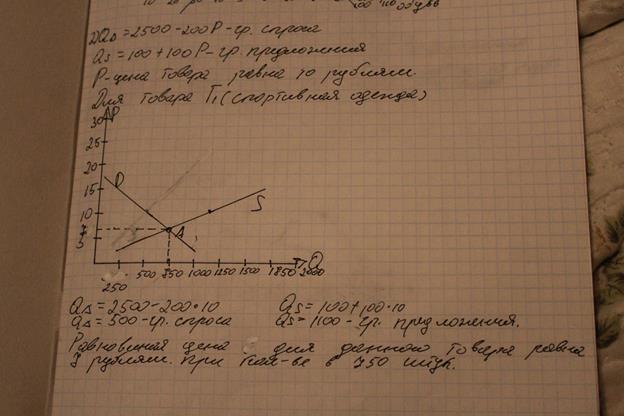 QD = 2500 - 200P - гр. спроса
QS = 100 + 100P - гр. предложения
P - цена товара равна 10 рублям.
Для товара T1 (спортивная одежда)
P
30
25
20
15
10
7
5
D
A
S
Q
250
500
750
1000
1250
1500
1850
2000
QD = 2500 - 200·10
QS = 100 + 100·10
QD = 500 - гр. спроса
QS = 1100 - гр. предложения.
Равновесная цена для данного товара равна
7 рублям. При кол-ве в 750 штук.